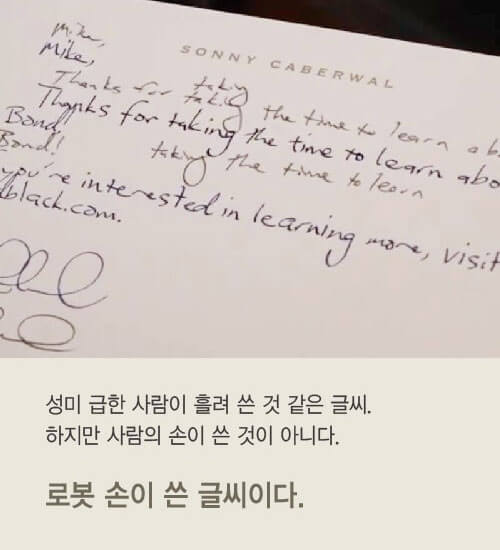 SONNY CABERWAL
Mike,
Mike,
Thanks for taking the time to learn
Thanks for taking the time to learn
Bond!
Bond!
taking the time to learn
you're interested in learning more, visit
black.com.
성미 급한 사람이 흘려 쓴 것 같은 글씨.
하지만 사람의 손이 쓴 것이 아니다.
로봇 손이 쓴 글씨이다.